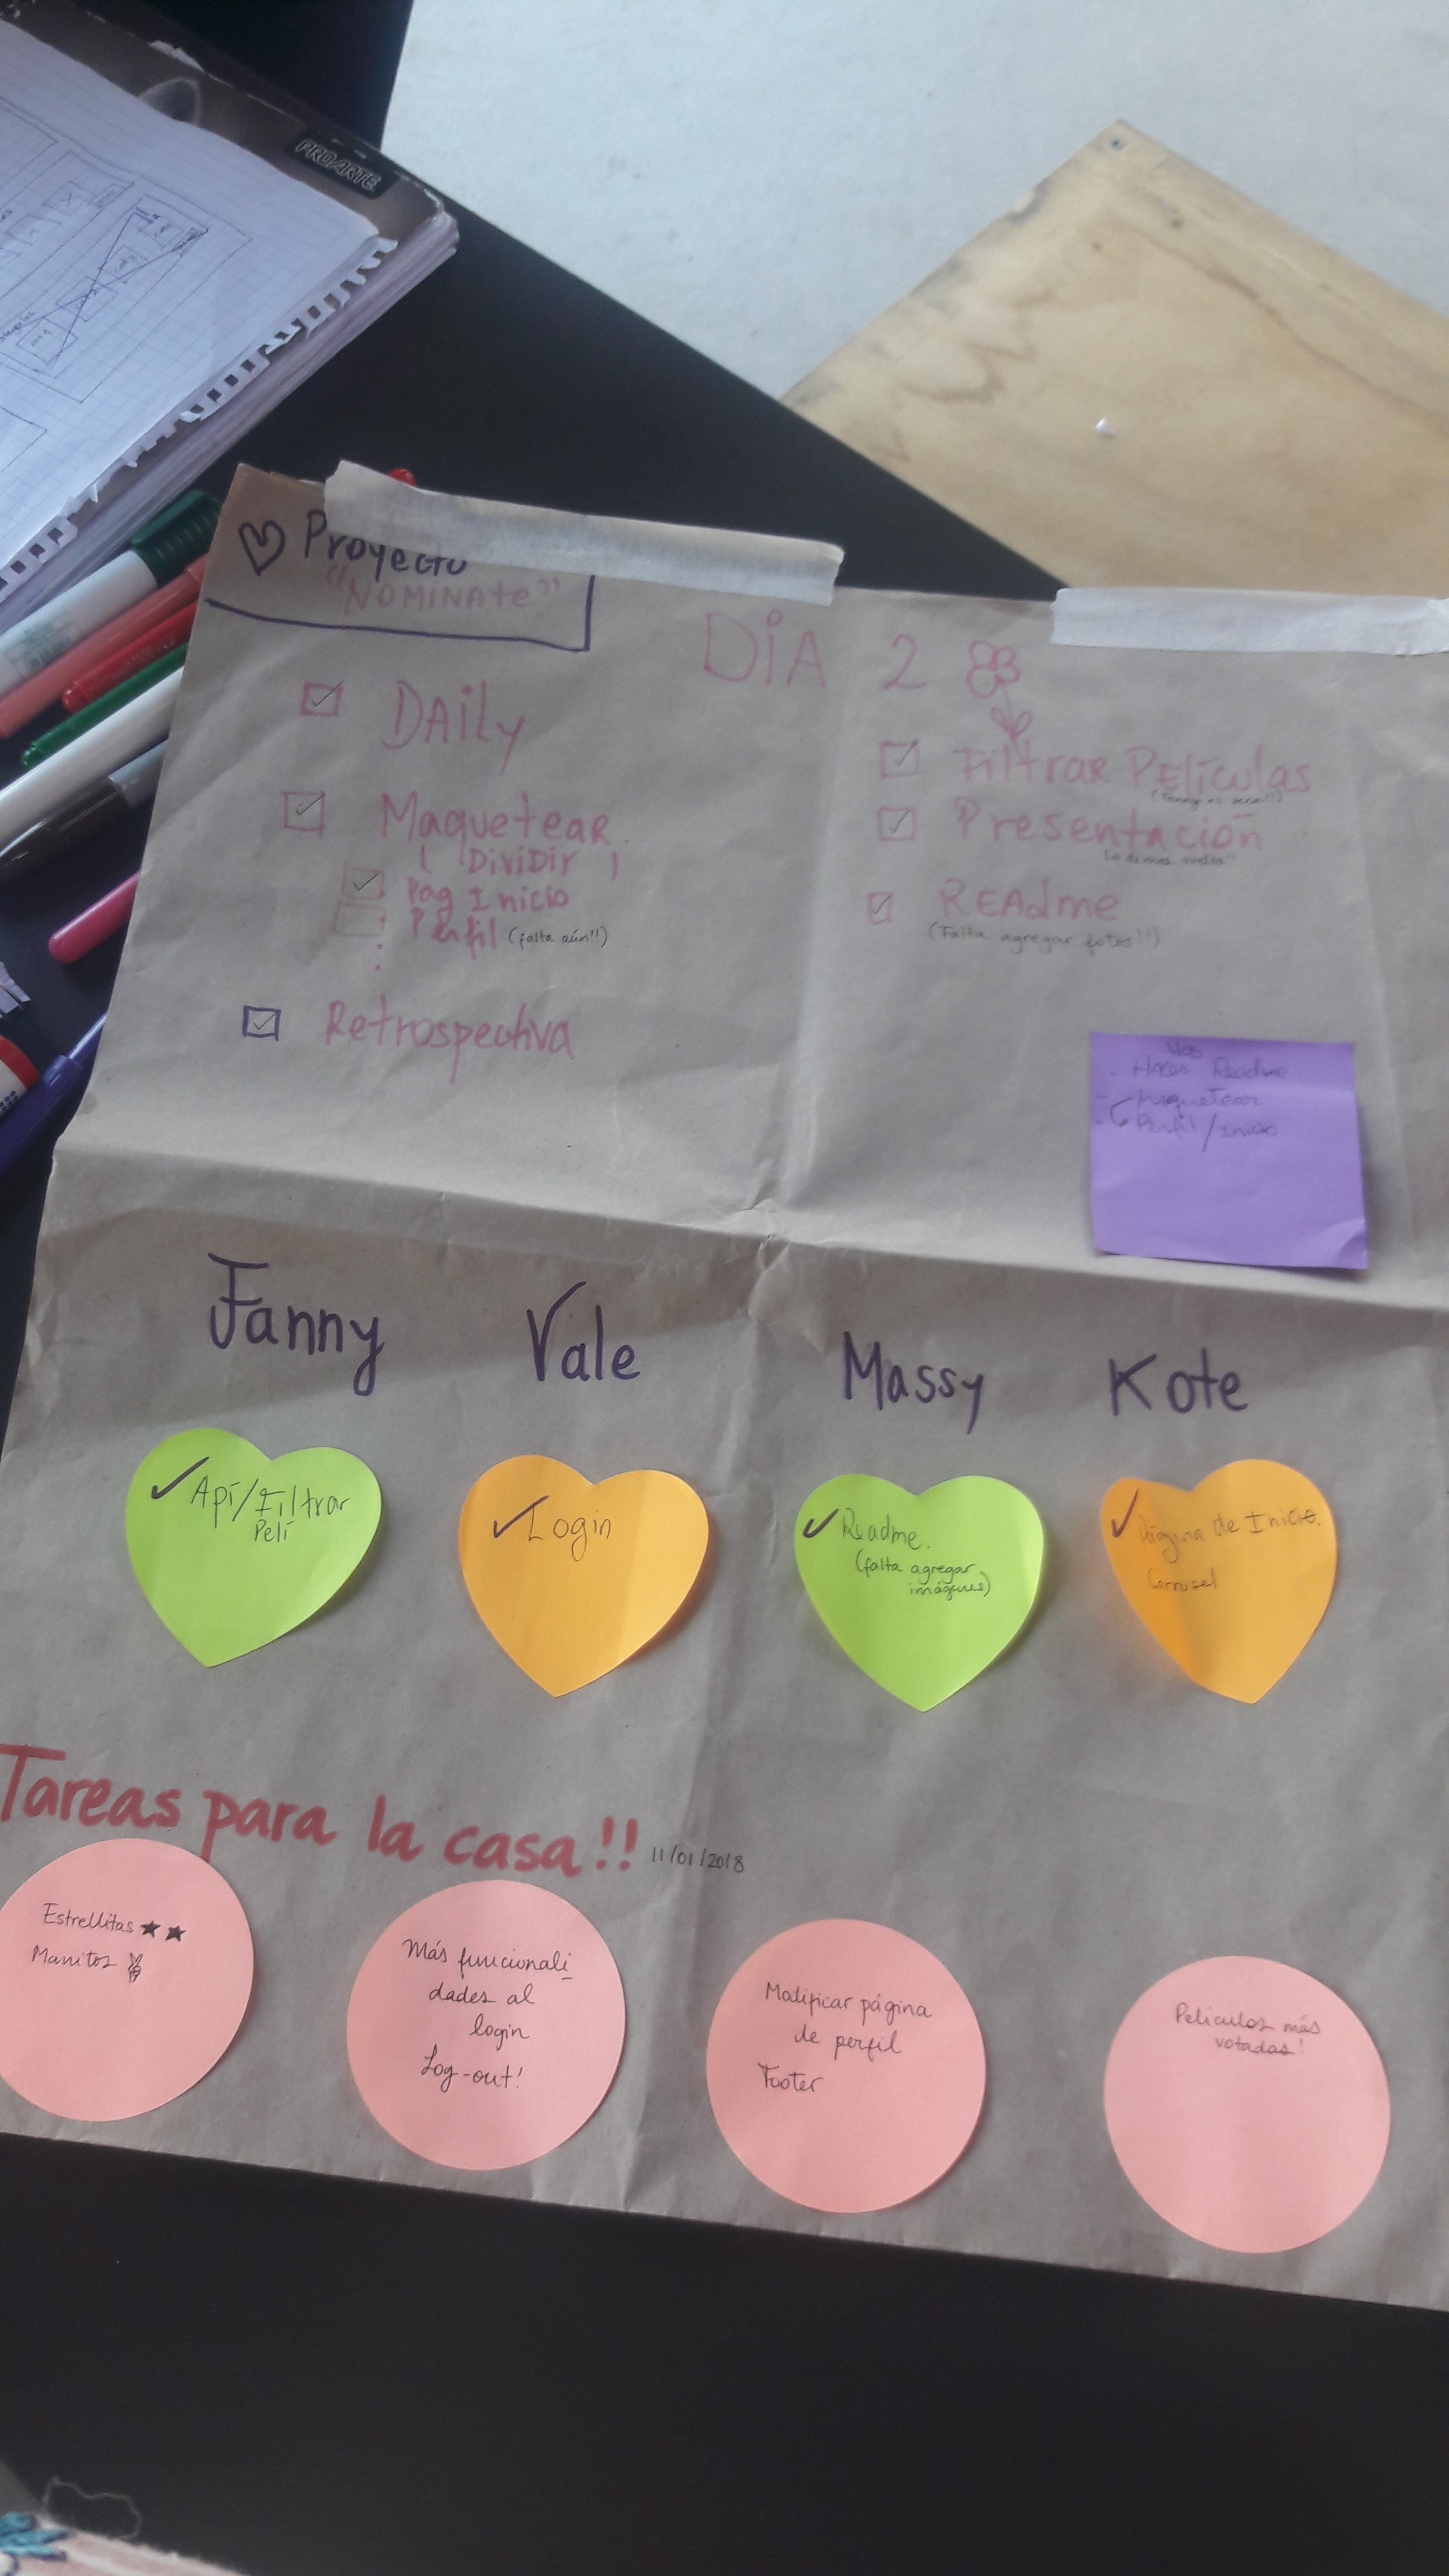 PROARTE
Proyecto
"NOMINATE"
DÍA 2
DAily
Maquetear
( DiViDir )
Pag Inicio
Perfil (falta aún!!)
Retrospectiva
Filtrar Películas
Presentación
REAdme
(Falta agregar fotos!!)
- Hacer Readme
- Maquetear
Perfil/Inicio
Fanny
Vale
Massy
Kote
✓ Api/Filtrar
Peli
✓ Login
✓ Readme.
(falta agregar
imágenes)
✓ Página de Inicio.
Carrusel
Tareas para la casa!! 11/01/2018
Estrellitas ★★
Manitos
Más funcionali
dades al
login
Log-out!
Modificar página
de perfil
Footer
Películas más
votadas!